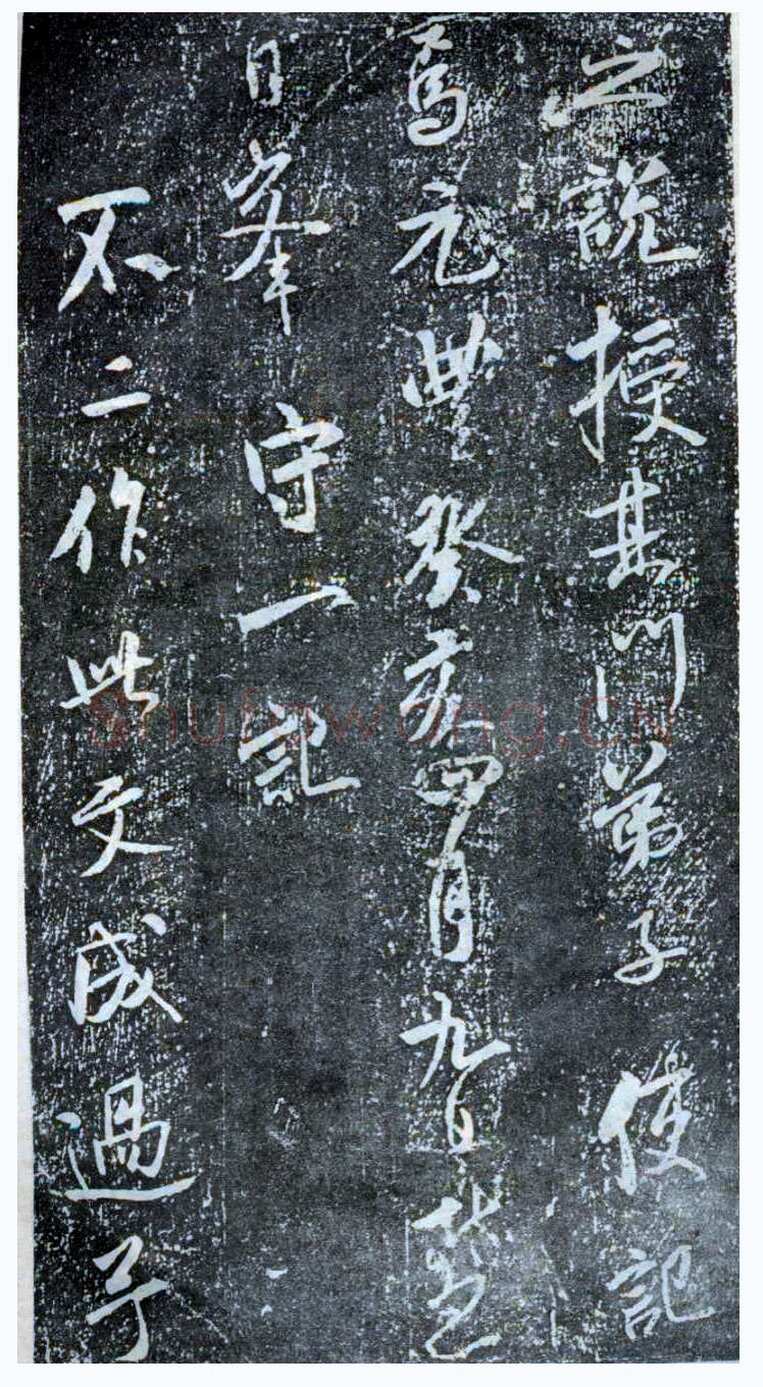 之說授其門弟子使記
焉元豐癸亥四月九日慧
日峯守一記
不二作此文成過予
Shufawang.CN